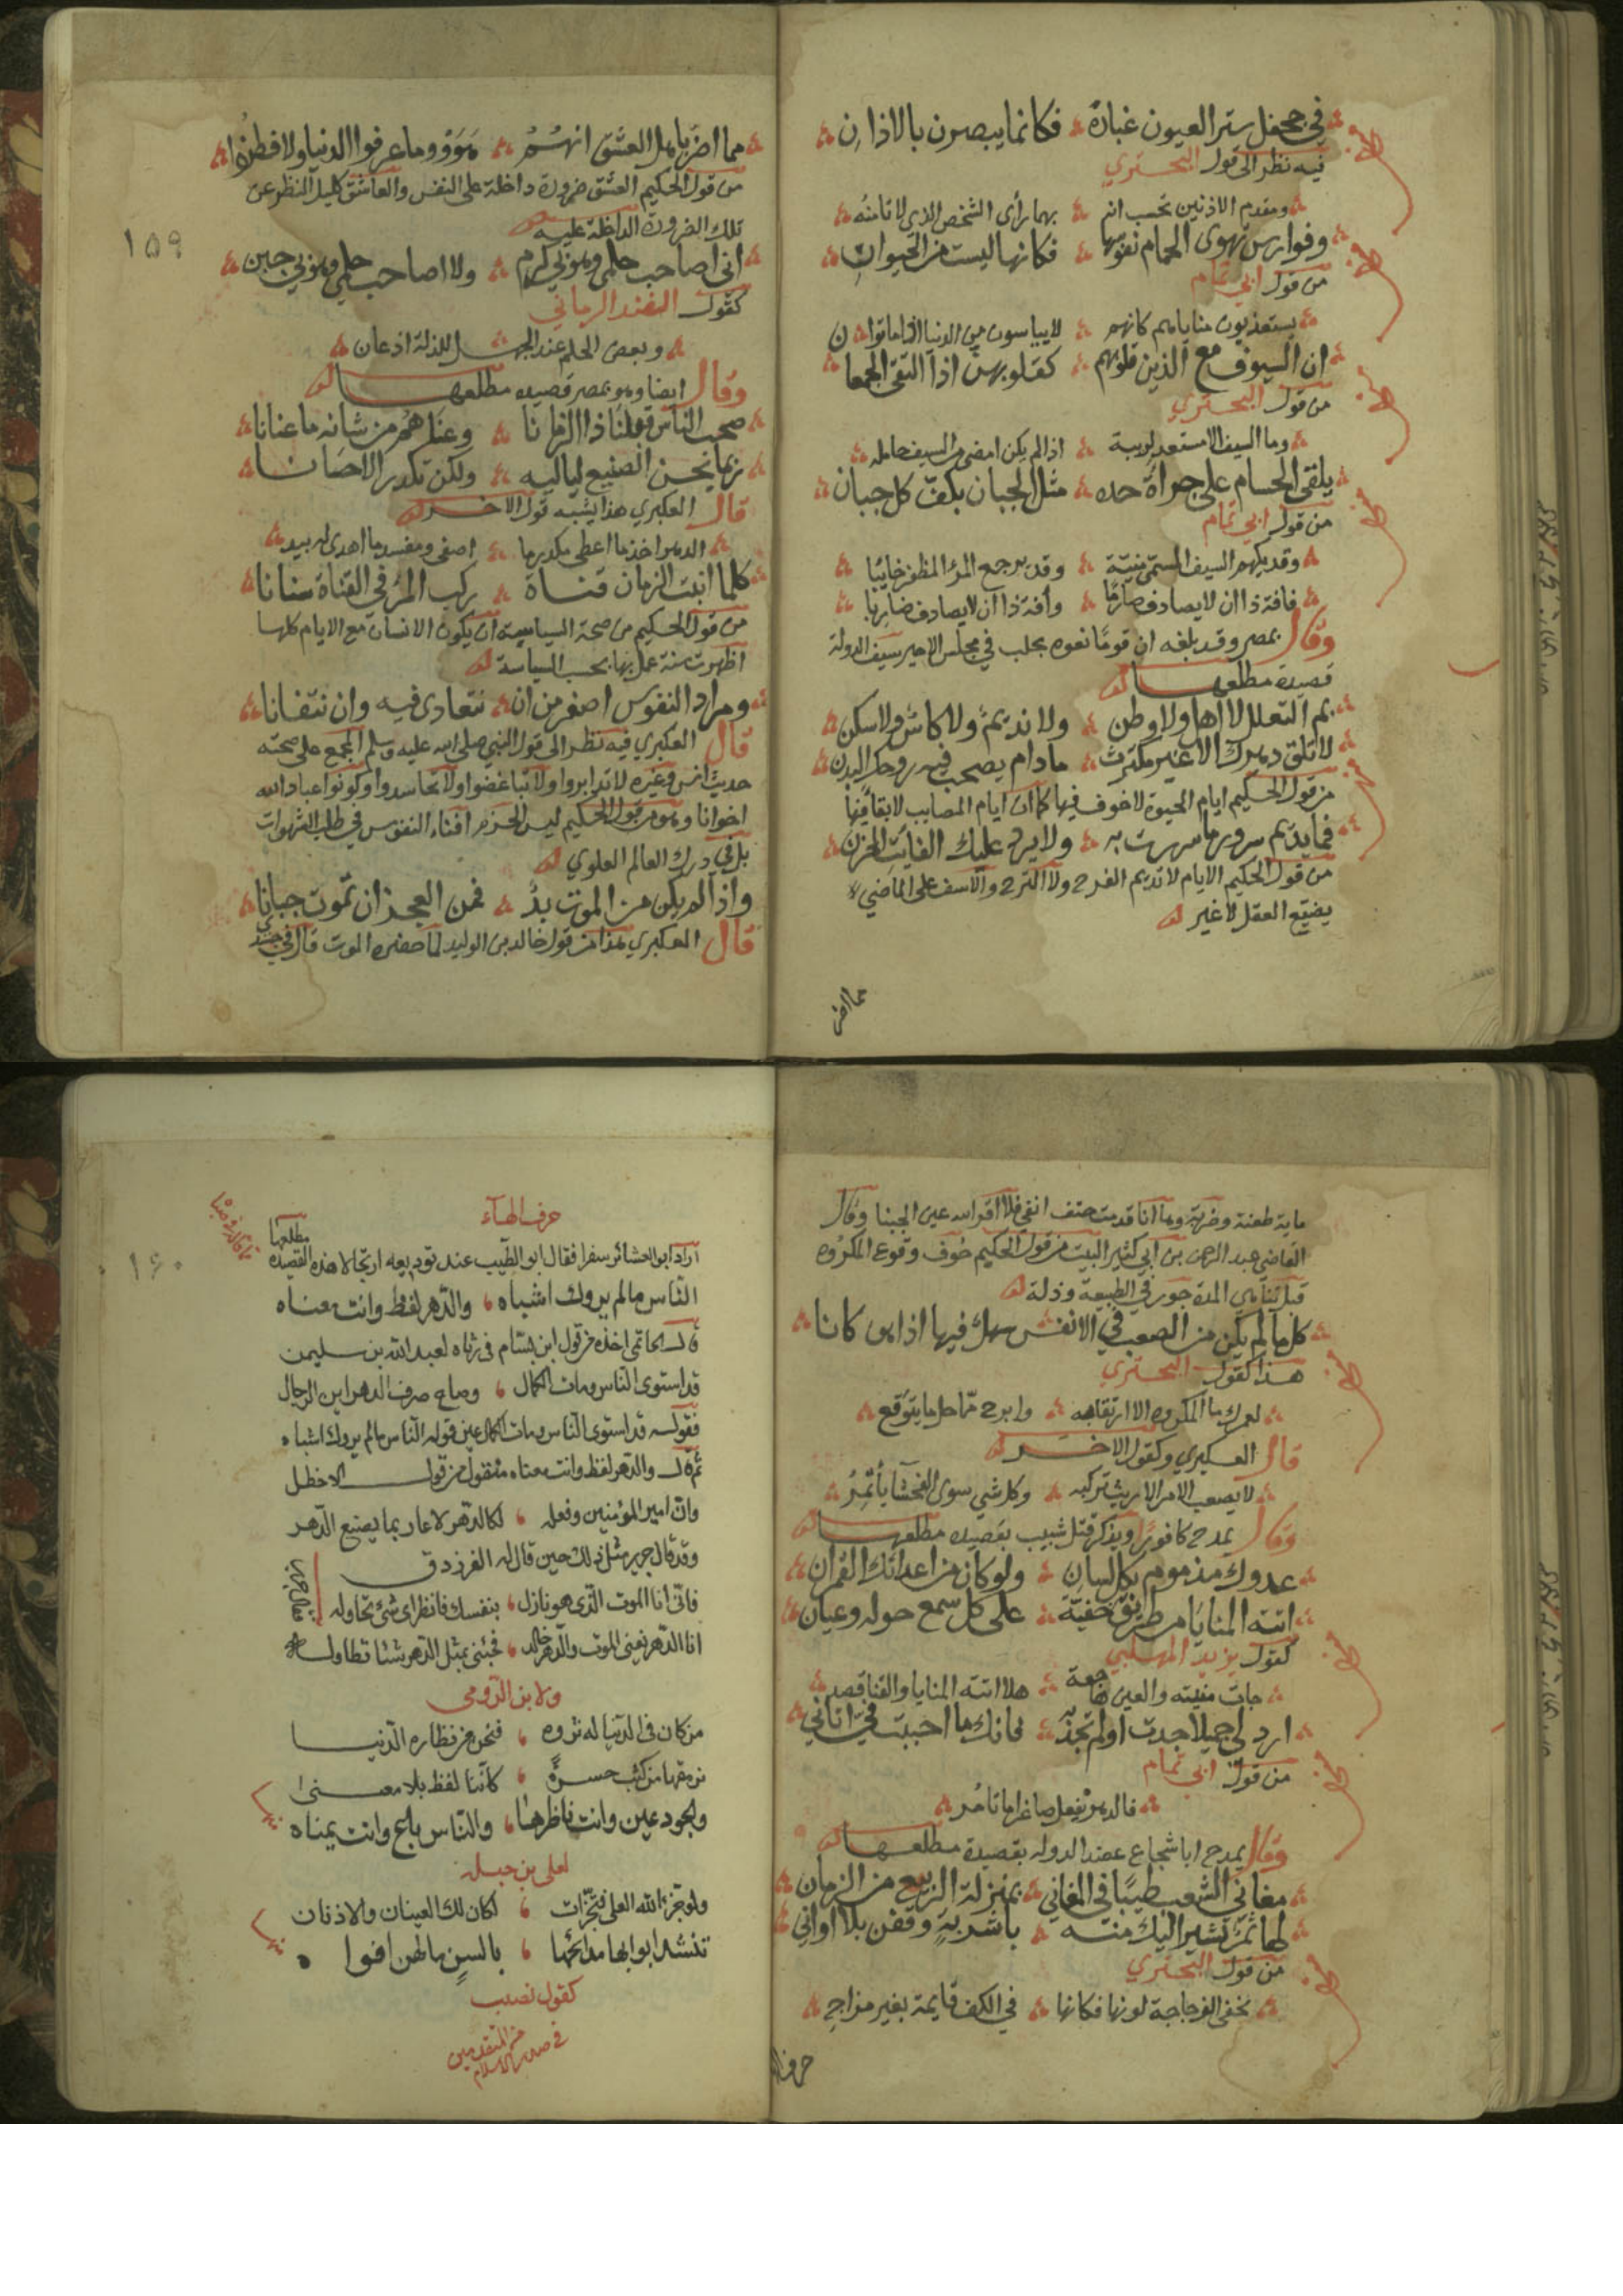 في جحفل ستر العيون غباره فكانما يبصرن بالاذان
فيه نظر الى قول البحتري
ومقدم الاذنين تحسب انه بهما رأى الشخص الذي لا تامنه
وفوارس تهوى الحمام نفوسها فكانها ليست من الحيوان
من قول ابي تمام
يستعذبون مناياهم كانهم لا يياسون من الدنيا اذا ماتوا
ان السيوف مع الذين قلوبهم كقلوبهن اذا التقى الجمعان
من قول البحتري
وما السيف الا مستعد لزينة اذا لم يكن امضى من السيف حامله
يلقى الحسام على جراءة حده مثل الجبان بكف كل جبان
من قول ابي تمام
وقد يكهم السيف المسمى منية وقد يرجع المرء المظفر خايبا
فافة ذا ان لا يصادف صارما وافة ذا ان لا يصادف ضاربا
وقال بمصر وقد بلغه ان قوما نعوه بحلب في مجلس الامير سيف الدولة
قصيدة مطلعها
بم التعلل لا اهل ولا وطن ولا نديم ولا كاس ولا سكن
لا تلق دهرك الا غير مكترث مادام يصحب فيه روحك البدن
من قول الحكيم ايام الحيوة لا خوف فيها كما ان ايام المصايب لا بقا فيها
فما يديم سرور ما سررت به ولا يرد عليك الفايت الحزن
من قول الحكيم الايام لا تديم الفرح ولا الترح والاسف على الماضي
يضيع العقل لا غير
مما اضر
١٥٩
مما اضر باهل العشق انهم هووا وما عرفوا الدنيا ولا فطنوا
من قول الحكيم العشق ضرورة داخلة على النفس والعاشق كليل النظر عن
تلك الضرورة الداخلة عليه
اني اصاحب حلمي وهو بي كرم ولا اصاحب حلمي وهو بي جبن
كقول الفند الزماني
وبعض الحلم عند الجهل للذلة اذعان
وقال ايضا وهو بمصر قصيده مطلعها
صحب الناس قبلنا ذا الزمانا وعناهم من شانه ما عنانا
ربما تحسن الصنيع لياليه ولكن تكدر الاحسانا
قال العكبري هذا يشبه قول الاخر
الدهر اخذ ما اعطى مكدر ما اصفى ومفسد ما اهدى له بيد
كلما انبت الزمان قناة ركب المرء في القناة سنانا
من قول الحكيم من صحة السياسة ان يكون الانسان مع الايام كلها
اظهرت سنة عمل بها بحسب السياسة
ومراد النفوس اصغر من ان نتعادى فيه وان نتفانا
قال العكبري فيه نظر الى قول النبي صلى الله عليه وسلم المجمع على صحته
حديث انس وغيره لا تدابروا ولا تباغضوا ولا تحاسدوا وكونوا عباد الله
اخوانا وهو من قول الحكيم ليس الحزم افناء النفوس في طلب الشهوات
بل في درك العالم العلوي
واذا لم يكن من الموت بد فمن العجز ان تموت جبانا
قال العكبري هذا من قول خالد بن الوليد لما حضره الموت قال في جسدي
ماية طعنة وضربة وها انا قد مت حتف انفي فلا اقر الله عين الجبنا وقال
القاضي عبد الرحمن بن ابي كثير البيت من قول الحكيم خوف وقوع المكروه
قبل تناهي المدة جور في الطبيعة وذلة
كل ما لم يكن من الصعب في الانفس سهل فيها اذا هو كانا
هذا كقول البحتري
لعمرك ما المكروه الا ارتقابه وابرح مما حل ما يتوقع
قال العكبري وكقول الاخر
لا يصعب الامر الا ريث تركبه وكل شي سوى الفحشا يأتمر
وقال يمدح كافورا ويذكر قتل شبيب بقصيده مطلعها
عدوك مذموم بكل لسان ولو كان من اعدائك القمران
اتته المنايا من طريق خفية على كل سمع حوله وعيان
كقول يزيد المهلبي
جات منيته والعين هاجعة هلا اتته المنايا والقنا قصد
ارد لي جميلا جدت او لم تجد به فانك ما احببت في اتاني
من قول ابي تمام
فالدهر يفعل صاغرا ما تامر
وقال يمدح ابا شجاع عضد الدوله بقصيدة مطلعها
مغاني الشعب طيبا في المغاني بمنزلة الربيع من الزمان
لها ثمر تشير اليك منه باشربة وقفن بلا اواني
من قول البحتري
يخفى الزجاجة لونها فكانها في الكف قايمة بغير مزاج
١٦٠
حرف الهاء
اراد ابو العشائر سفرا فقال ابو الطيب عند توديعه ارتجالا هذه القصيده مطلعها
الناس مالم يروك اشباه والدهر لفظ وانت معناه
قال الحاتمي اخذه من قول ابن بسام في رثاه لعبد الله بن سليمن
قد استوى الناس ومات الكمال وصاح صرف الدهر اين الرجال
فقوله قد استوى الناس ومات الكمال عين قوله الناس مالم يروك اشباه
ثم قال والدهر لفظ وانت معناه منقول من قول الاخطل
وان امير المؤمنين وفعله لكالدهر لا عار بما يصنع الدهر
وقد قال جرير مثل ذلك حين قال له الفرزدق
فاني انا الموت الذي هو نازل بنفسك فانظر اي شئ تحاوله
انا الدهر يفني الموت والدهر خالد فجئني بمثل الدهر شئا تطاوله
ولابن الرومي
من كان في الدنيا له ثروه فنحن من نظاره الدنيا
نرمقها من كثب حسرة كاننا لفظ بلا معنى
والجود عين وانت ناظرها والناس باع وانت يمناه
لعلي بن جبله
ولو تجزء الله العلى فتجزات لكان لك العينان والاذنان
تنشد ابوابها مدائحها بالسن مالهن افوا ه
كقول نصيب
من المتقدمين
في صدر الاسلام